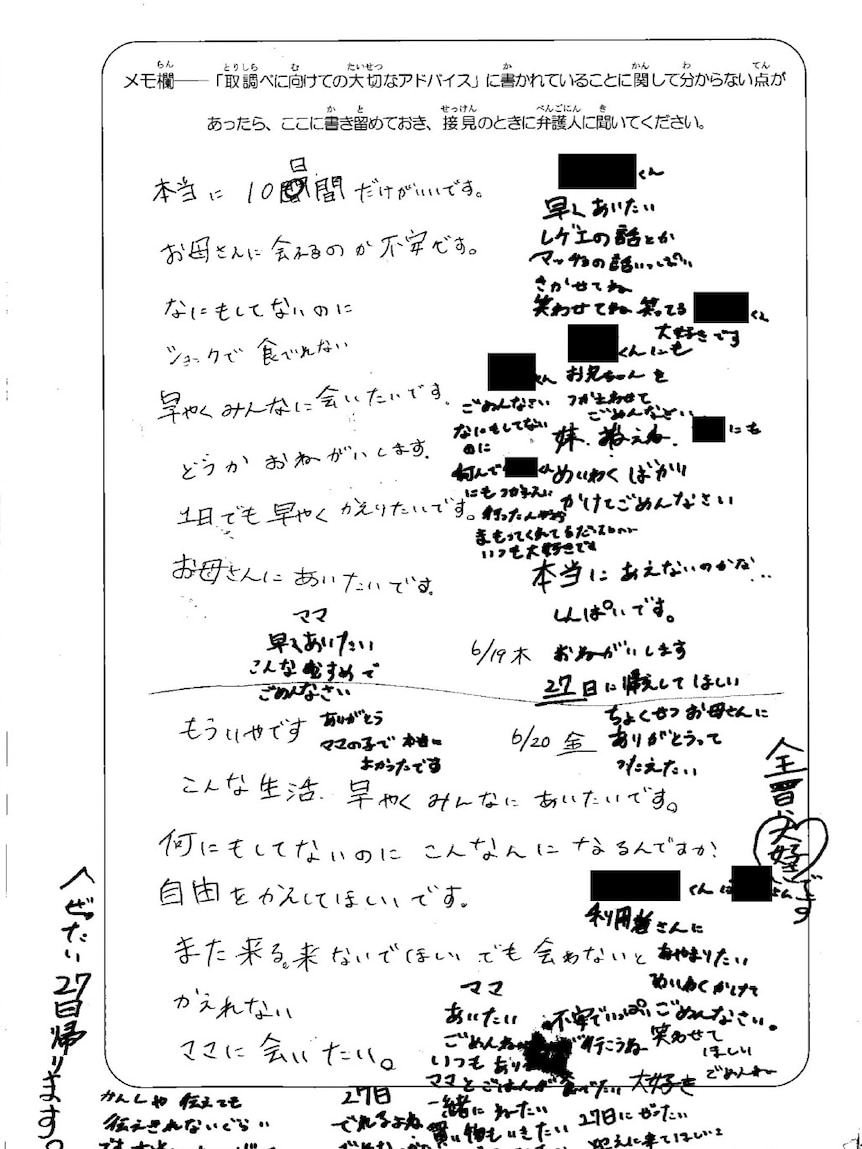 メモ欄──「取調べに向けての大切なアドバイス」に書かれていることに関して分からない点が
あったら、ここに書き留めておき、接見のときに弁護人に聞いてください。
本当に 10日間だけがいいです。
お母さんに会えるのか不安です。
なにもしてないのに
ショックで 食べれない
早やくみんなに会いたいです。
どうか おねがいします。
1日でも早やく かえりたいです。
お母さんにあいたいです。
くん
早くあいたい
レゲエの話とか
マッチョの話いっぱい
さかせてね
笑わせてね 笑ってる くん
大好きです
くんにも
お兄ちゃんを
つかまわせて
ごめんなさい
妹、 にも
めいわくばかり
かけてごめんなさい
くん
ごめんなさい
なにもしてない
のに
何んで くん
まもってくれてる
いつも大好きです
本当にあえないのかな...
しんぱいです。
6/19木 おねがいします
27日に帰えしてほしい
ママ
早くあいたい
こんなむすめで
ごめんなさい
もういやです
ありがとう
ママの子で 本当に
よかったです
6/20 金
ちょくせつ お母さんに
ありがとうって
つたえたい
こんな生活、早やくみんなにあいたいです。
何にもしてないのに こんなんに なるんですか?
自由をかえしてほしいです。
また来る。来ないでほしい でも会わないと
かえれない
ママに会いたい。
くん
利用者さんに
あやまりたい
めいわくかけて
ごめんなさい。
笑わせて
ほしい
ごめんね
ママ
あいたい
ごめんね
いつも
不安でいっぱい
行こうね
ママとごはんが食べたい 大好き
一緒にねたい
買い物もいきたい
27日に
迎えに来てほしい
27日
でれるよね
かんしゃ 伝えても
伝えきれないぐらい
全員
大好き
です
ぜったい27日帰ります。